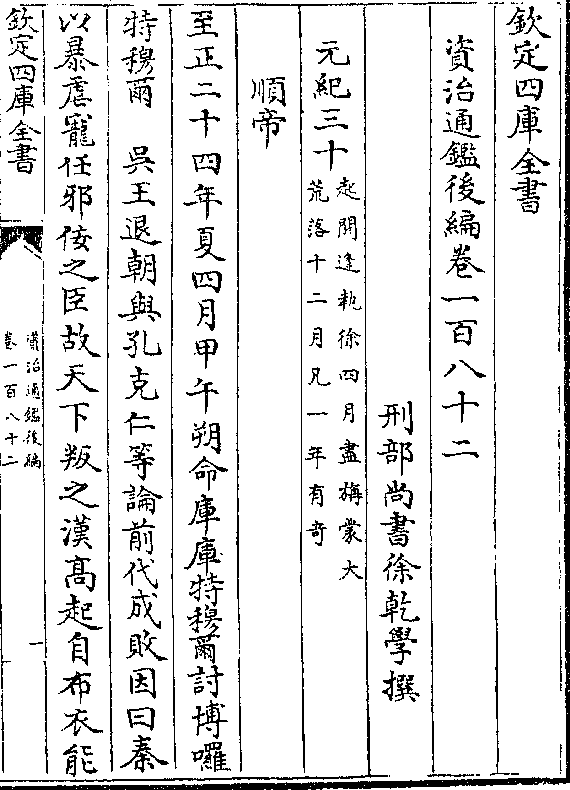 欽定四庫全書
資治通鑑後編卷一百八十二
刑部尚書徐乾學撰
元紀三十
起閼逢執徐四月盡旃蒙大
荒落十二月凡一年有奇
順帝
至正二十四年夏四月甲午朔命庫庫特穆爾討博囉
特穆爾 吳王退朝與孔克仁等論前代成敗因曰秦
以暴虐寵任邪佞之臣故天下叛之漢高起自布衣能
欽定四庫全書
資治通鑑後編
卷一百八十二
一